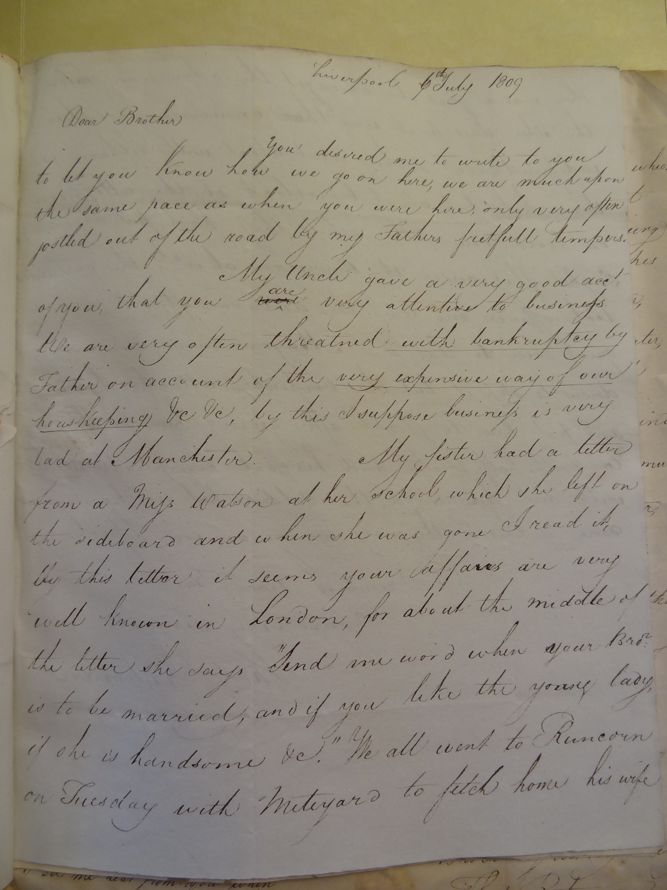 Liverpool 6th July 1809
Dear Brother
You desired me to write to you
to let you know how we go on here, we are much upon
the same pace as when you were here, only very often
jostled out of the road by my Fathers fretfull tempers.
My Uncle gave a very good acct.
are
of you, that you were very attentive to business
We are very often threatned with bankruptcy by
Father on account of the very expensive way of our
houskeeping &c &c, by this I suppose business is very
bad at Manchester. My sister had a letter
from a Miss Watson at her school, which she left on
the sideboard and when she was gone I read it,
by this letter it seems your affairs are very
well known in London, for about the middle of
the letter she says "Send me word when your Bror.
is to be married, and if you like the young lady,
if she is handsome &c." We all went to Runcorn
on Tuesday with Meteyard to fetch home his wife